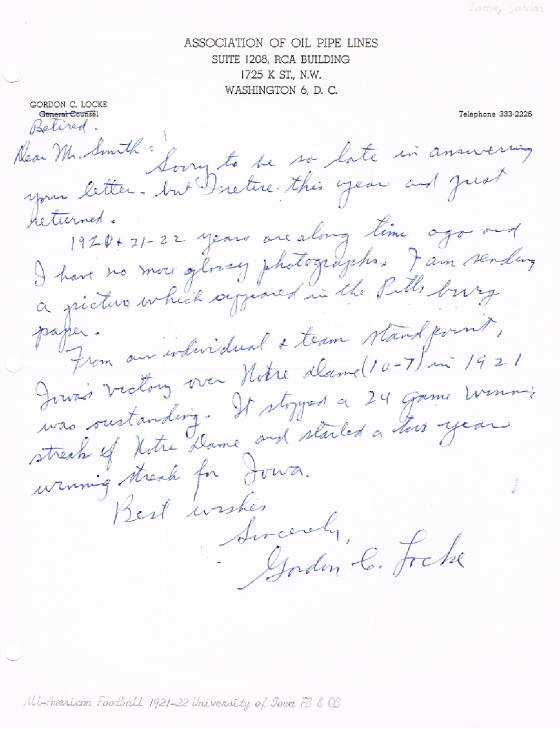 Locke, Gordon
ASSOCIATION OF OIL PIPE LINES
SUITE 1208, RCA BUILDING
1725 K ST., N.W.
WASHINGTON 6, D. C.
GORDON C. LOCKE
General Counsel
Telephone 333-2226
Retired.
Dear Mr. Smith:
Sorry to be so late in answering
your letter - but I retire this year and just
returned.
1920 + 21-22 years are along time ago and
I have no more glossy photographs. I am sending
a picture which appeared in the Pittsburg
paper.
From an individual & team standpoint,
Iowa's victory over Notre Dame (10-7) in 1921
was oustanding. It stopped a 24 game winning
streak of Notre Dame and started a two year
winning streak for Iowa.
Best wishes
Sincerely,
Gordon C. Locke
All-American Football 1921-22 University of Iowa FB & QB